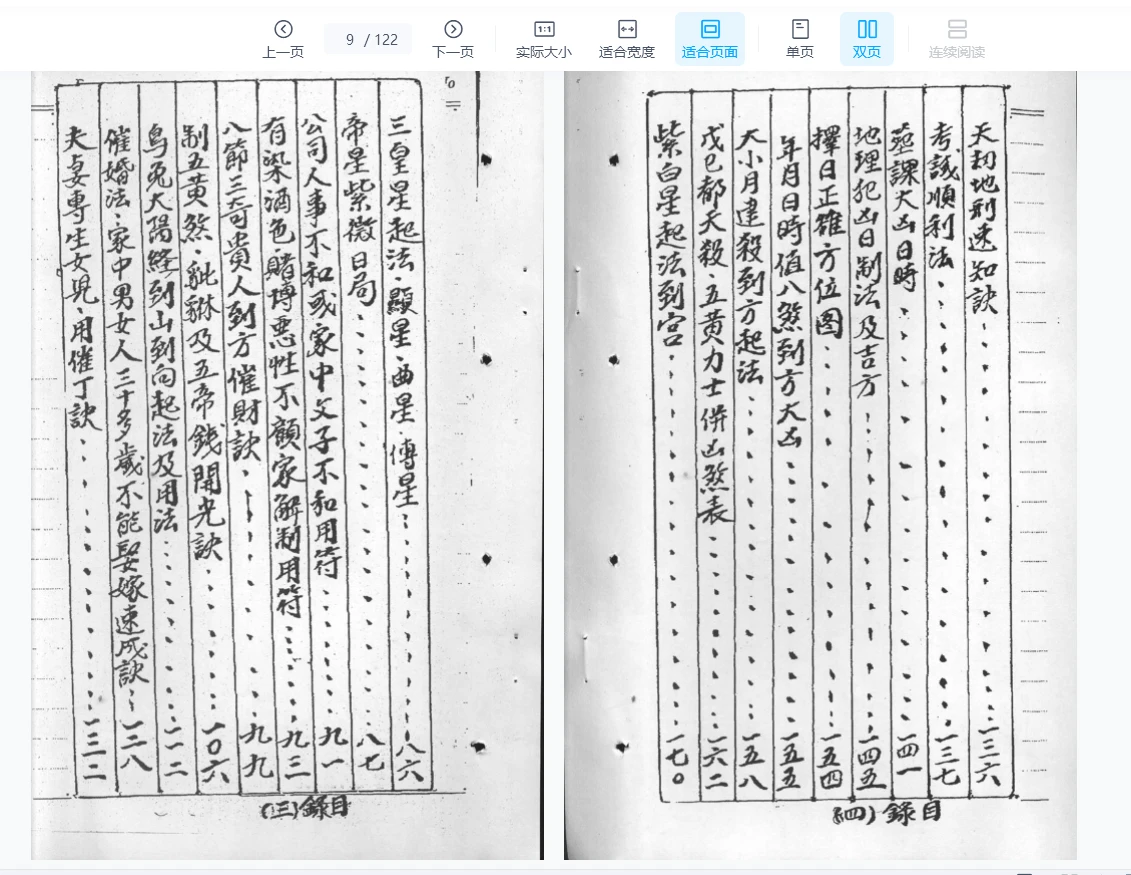 上一页
9 / 122
下一页
1:1
实际大小
适合宽度
适合页面
单页
双页
连续阅读
三皇星起法·顯星·曲星·傅星 八六
帝星紫微日局 八七
公司人事不和或家中父子不和用符 九一
有染酒色賭博悪性不顧家解制用符 九三
八節三奇貴人到方催財訣 九九
制五黃煞·貔貅及五帝錢開光訣 一0六
烏兔太陽經到山到向起法及用法 一一二
催婚法·家中男女人三十多歲不能娶嫁速成訣 一二八
夫妻專生女児·用催丁訣 一三二
(三)錄目
天刧地刑速知訣 一三六
考試順利法 一三七
課大凶日時 一四一
地理犯凶日制法及吉方 一四五
擇日正確方位图 一五四
年月日時值八煞到方大凶 一五五
大小月建殺到方起法 一五八
戊己都天殺·五黃力士併凶煞表 一六二
紫白星起法到宮 一七0
(四)錄目